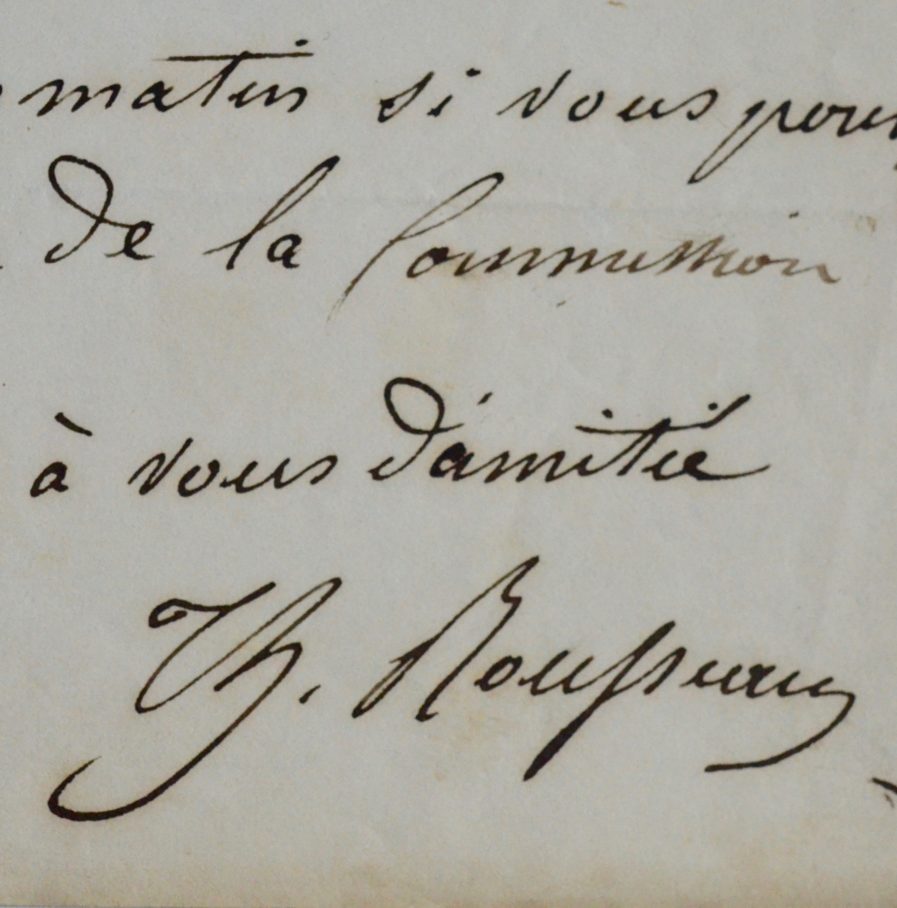 matin si vous pour
de la Commission
à vous d'amitié
Th. Rousseau